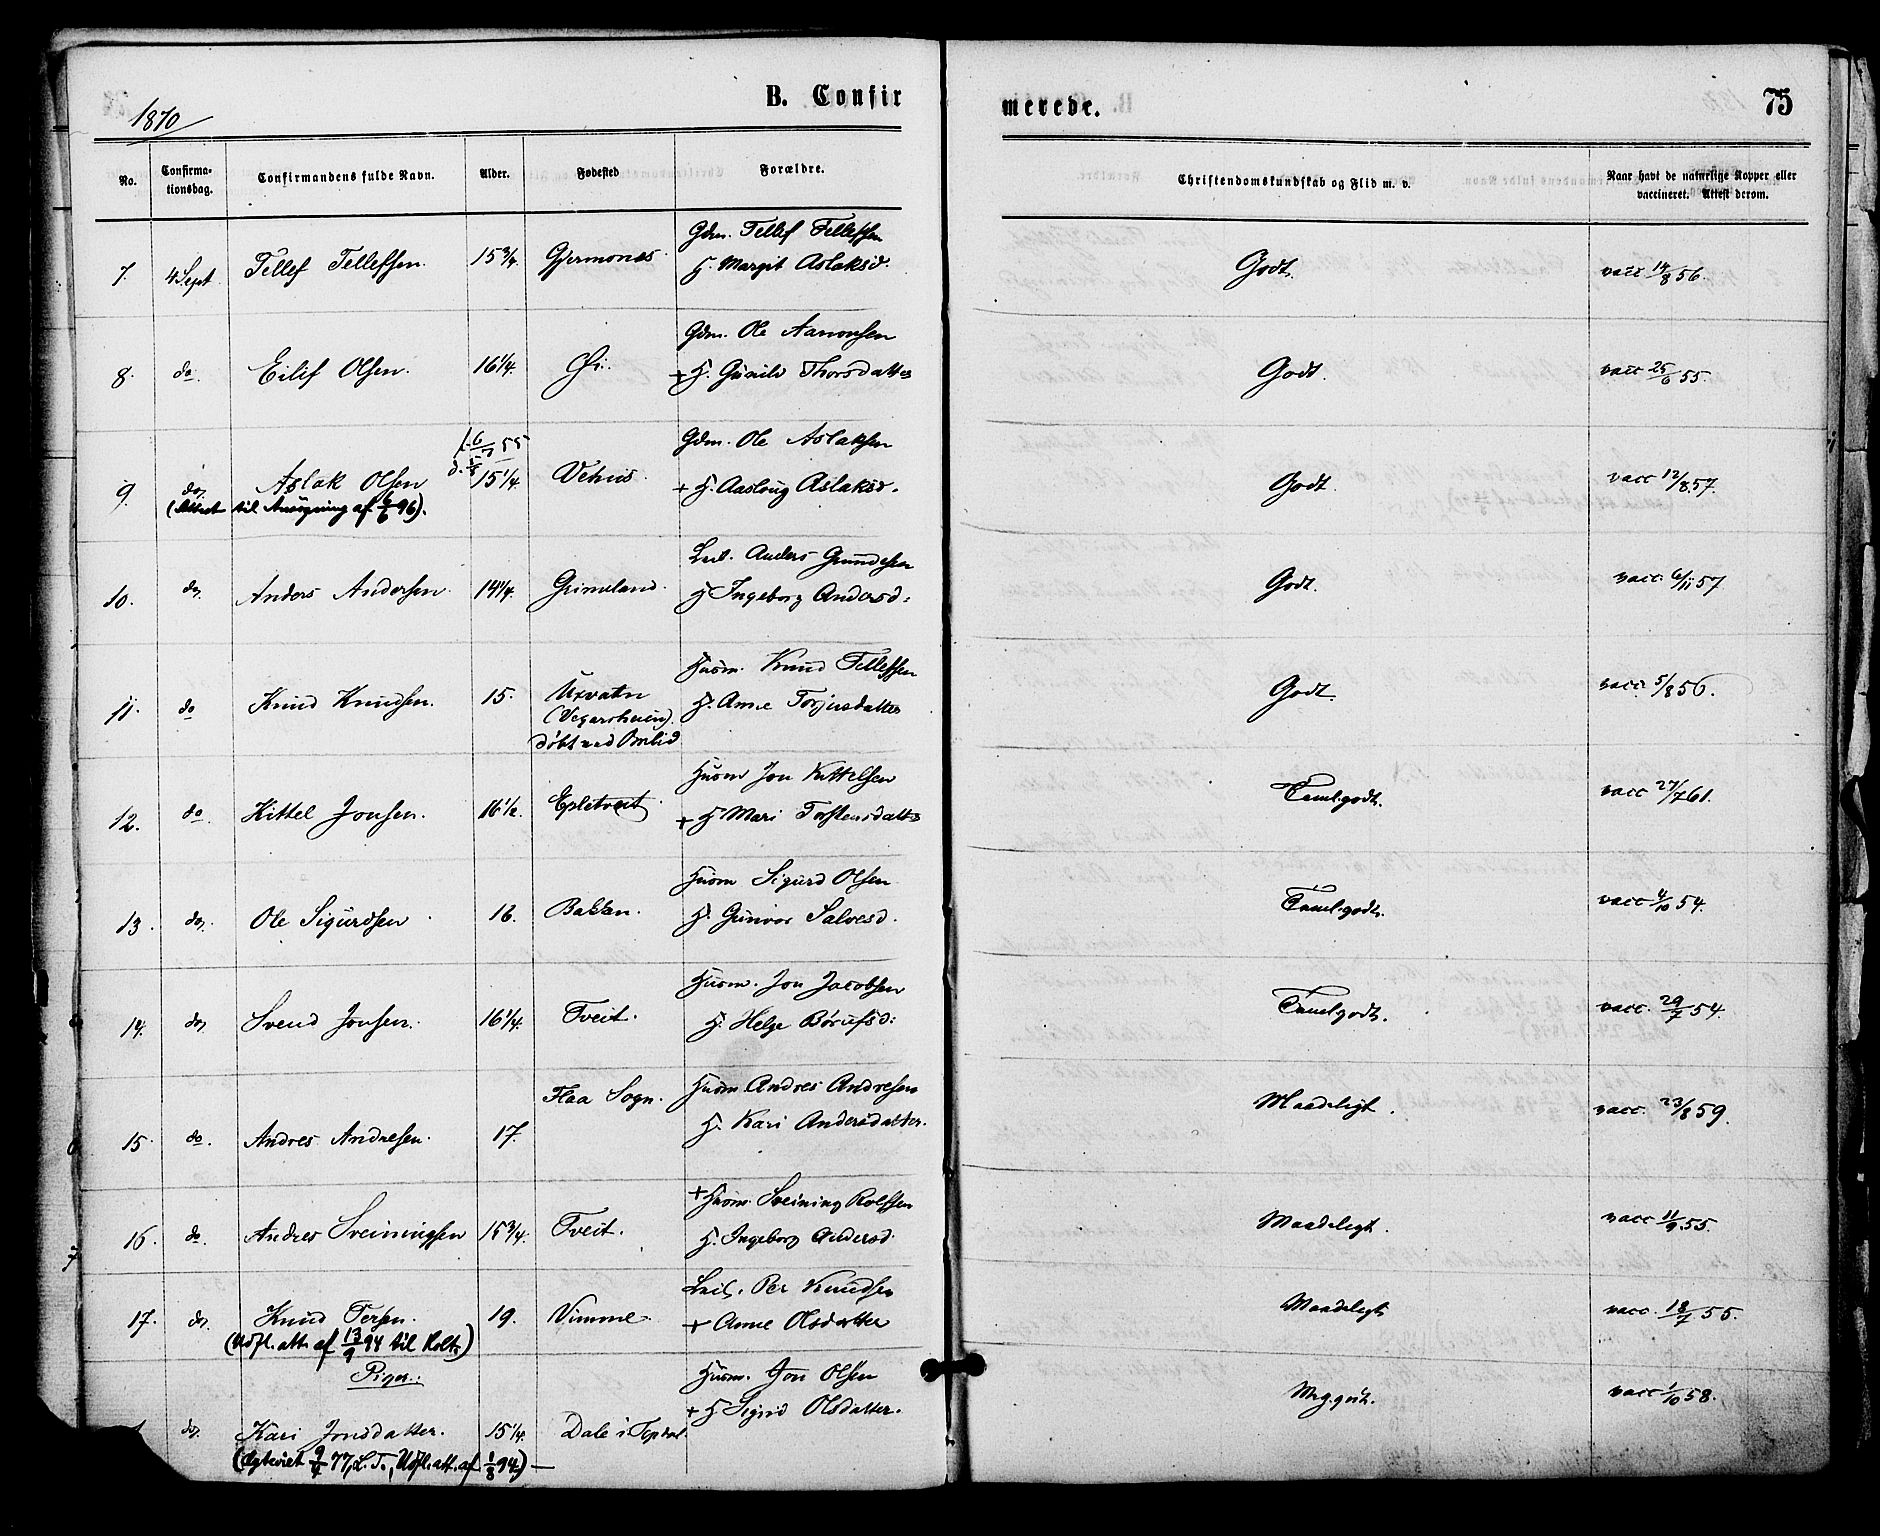 1870
B. Confirmerede.
75
No. Confirmationsdag. Confirmandens fulde Navn. Alder. Fødested Forældre. Christendomskundskab og Flid m. v. Naar havt de naturlige Kopper eller vaccineret. Attest derom.
Gdm. Tellef Tellefsen
7 4 Sept. Tellef Tellefsen. 15 3/4. Gjermonæs. H. Margit Aslaksd. Godt. vacc 14/8 56.
Gdm. Ole Aanonsen
8. do. Eilif Olsen. 16 1/4. + H. Gunild Thorsdatter Godt. vacc 25/6 55.
Gdm. Ole Aslaksen
9. do. Aslak Olsen 15 1/4. Vehus. + H. Aaslaug Aslaksd. Godt. vacc 12/8 57.
(Attest til Ansøgning af 6/6 96).
Anders Gundesen
10. do. Anders Andersen. 14 1/4. Grimeland. H Ingeborg Andersd. Godt. vacc. 6/11 57
Husm. Knud Tellefsen
11. do Knud Knudsen. 15. Uxvatn H. Anne Torjusdatter Godt. vacc. 5/8 56.
(Vegarsheien).
døbt ved Omlid
Husm Jon Kittelsen
12. do. Kittel Jonsen. 16 1/2. Epletveit. + H Mari Torstensdatter Temel. godt. vacc 27/7 61.
Husm Sigurd Olsen
13. do. Ole Sigurdsen 16. Bakken. H. Gunvor Salvesd. Temel. godt. vacc 4/10 54.
Husm. Jon Jacobsen
14. do. Svend Jonsen. 16 1/4. Tveit. H. Helge Børufsd. Temel godt. vacc. 29/7 54.
Flaa Sogn. Husm. Andres Andresen
15. do. Andres Andresen. 17. H. Kari Andersdatter. Maadeligt. vacc. 23/8 59.
+ Husm. Sveining Rolfsen
16. do. Andres Sveiningsen 15 3/4. Tveit. H. Ingeborg Andersd. Maadeligt. vacc 11/9 55.
Per Knudsen
17. do. Knud Persen. 19. Vimme. + Anne Olsdatter Maadeligt vacc. 18/7 55.
(Udfl. att. af 13/9 94 til Holt.)
Piger.: Husm. Jon Olsen
+ H Sigrid Olsdatter. Meg. godt. vacc 1/10 58.
do. Kari Jonsdatter. 15 1/4. Dale i Topdal
77, L. T., Udfl. att. af 1/8 94) —